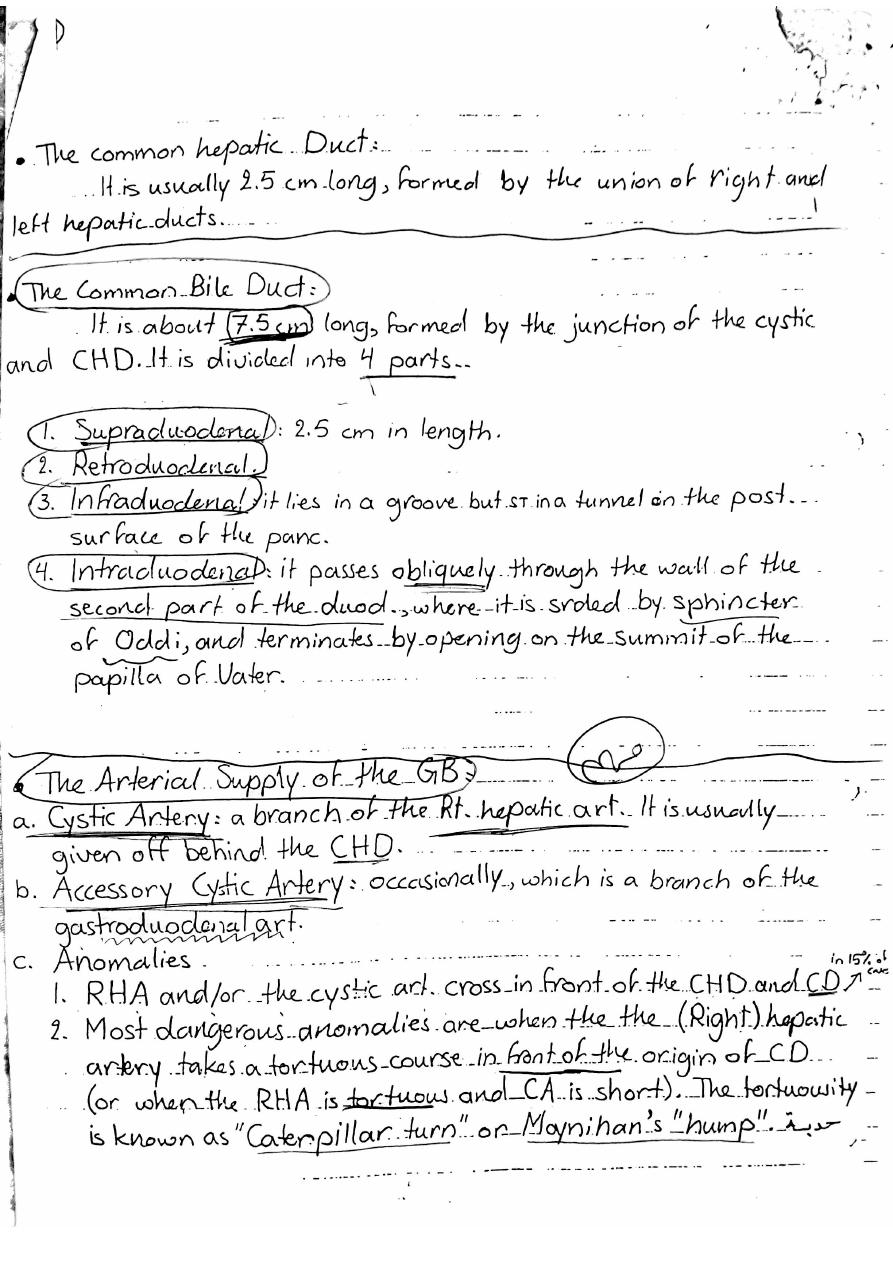 • The common hepatic Duct:
It is usually 2.5 cm long, formed by the union of right and
left hepatic ducts.
• The Common Bile Duct:
It is about 7.5 cm long, formed by the junction of the cystic
and CHD. It is divided into 4 parts.
1. Supraduodenal: 2.5 cm in length.
2. Retroduodenal.
3. Infraduodenal it lies in a groove but ST in a tunnel on the post.
surface of the panc.
4. Intraduodenal: it passes obliquely through the wall of the
second part of the duod., where it is sroled by sphincter
of Oddi, and terminates by opening on the summit of the
papilla of Vater.
• The Arterial Supply of the GB:
a. Cystic Artery: a branch of the Rt. hepatic art. It is usually
given off behind the CHD.
b. Accessory Cystic Artery: occasionally, which is a branch of the
gastroduodenal art.
c. Anomalies.
in 15% of
1. RHA and/or the cystic art. cross in front of the CHD and CD ↗ case
2. Most dangerous anomalies are when the the (Right) hepatic
artery takes a tortuous course in front of the origin of CD
(or when the RHA is tortuous and CA is short). The tortuousity
is known as "Caterpillar turn" or Moynihan's "hump". حدبة